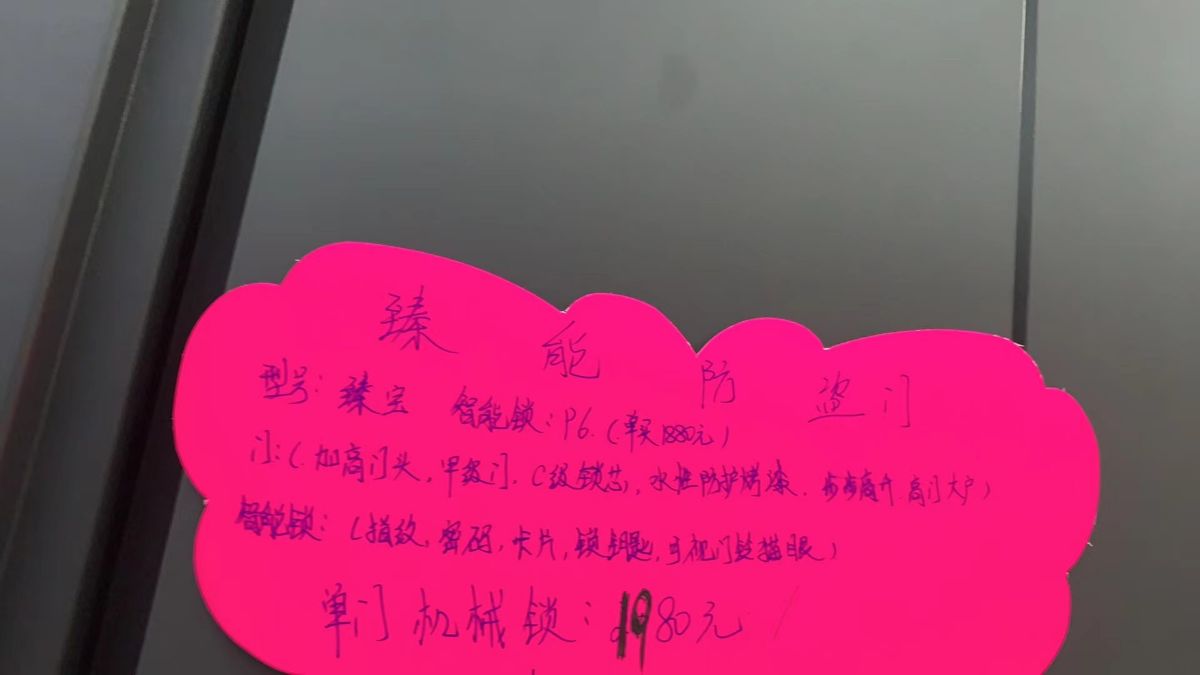 臻能防盗门
型号：臻宝 智能锁：P6.（单买1880元）
门：（加高门头，甲级门，C级锁芯，水性防护烤漆．步步高升．高门大户）
智能锁：（指纹，密码，卡片，锁钥匙，可视门铃猫眼）
单门机械锁：1980元